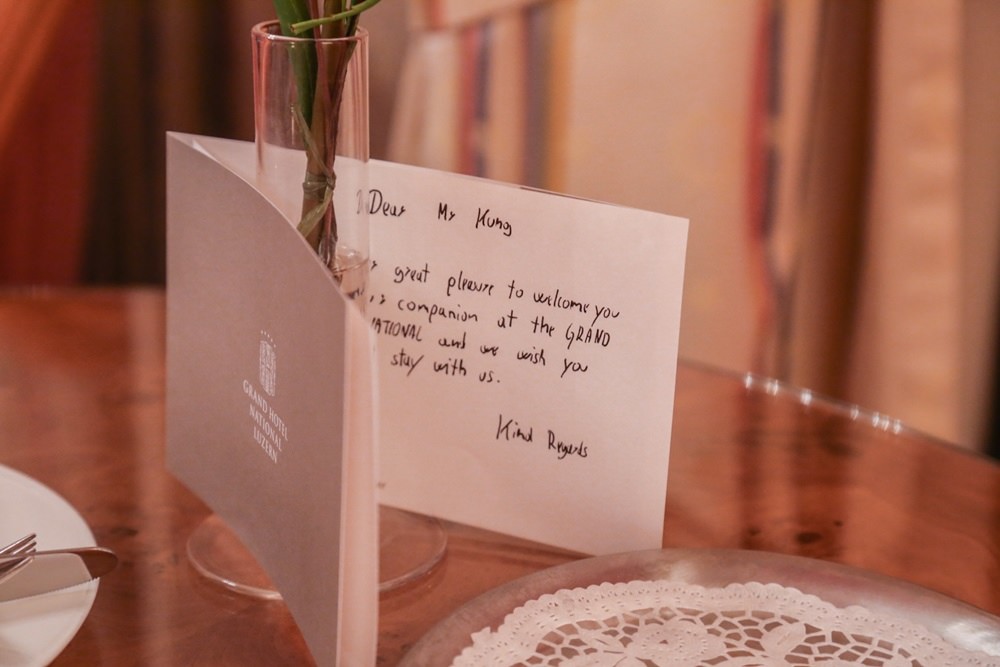 Dear Mr Kung
great pleasure to welcome you
companion at the GRAND
NATIONAL and we wish you
stay with us.
Kind Regards
GRAND HOTEL
NATIONAL
LUZERN